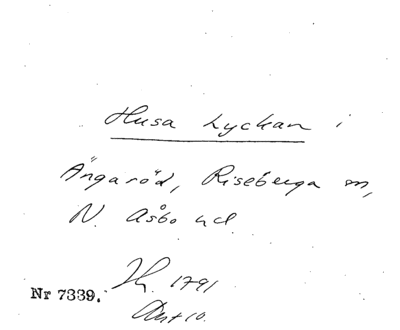 Husa Lyckan i
Ängaröd, Riseberga sn,
N. Åsbo hd.
1791
Nr 7339.
10.